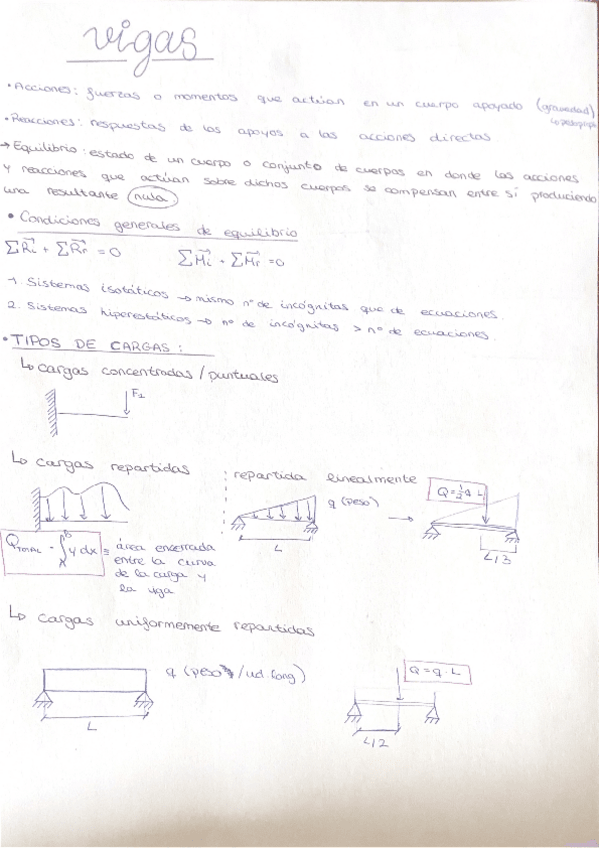 vigas
• Acciones: fuerzas o momentos que actúan en un cuerpo apoyado (gravedad)
• Reacciones: respuestas de los apoyos a las acciones directas
→ Equilibrio: estado de un cuerpo o conjunto de cuerpos en donde las acciones
y reacciones que actúan sobre dichos cuerpos se compensan entre sí produciendo
una resultante nula
• Condiciones generales de equilibrio
∑Ri + ∑Rr = 0 ∑Mi + ∑Mr = 0
1. Sistemas isotáticos → mismo nº de incógnitas que de ecuaciones.
2. Sistemas hiperestáticos → nº de incógnitas > nº de ecuaciones.
• TIPOS DE CARGAS:
↳ cargas concentradas / puntuales
F1
↳ cargas repartidas
repartida linealmente
q (peso)
→
Q = 1/2 q · L
L
L/3
QTOTAL = ∫ y dx ≡ área encerrada
entre la curva
de la carga y
la viga
↳ cargas uniformemente repartidas
q (peso/ud. long)
Q = q · L
L
L/2